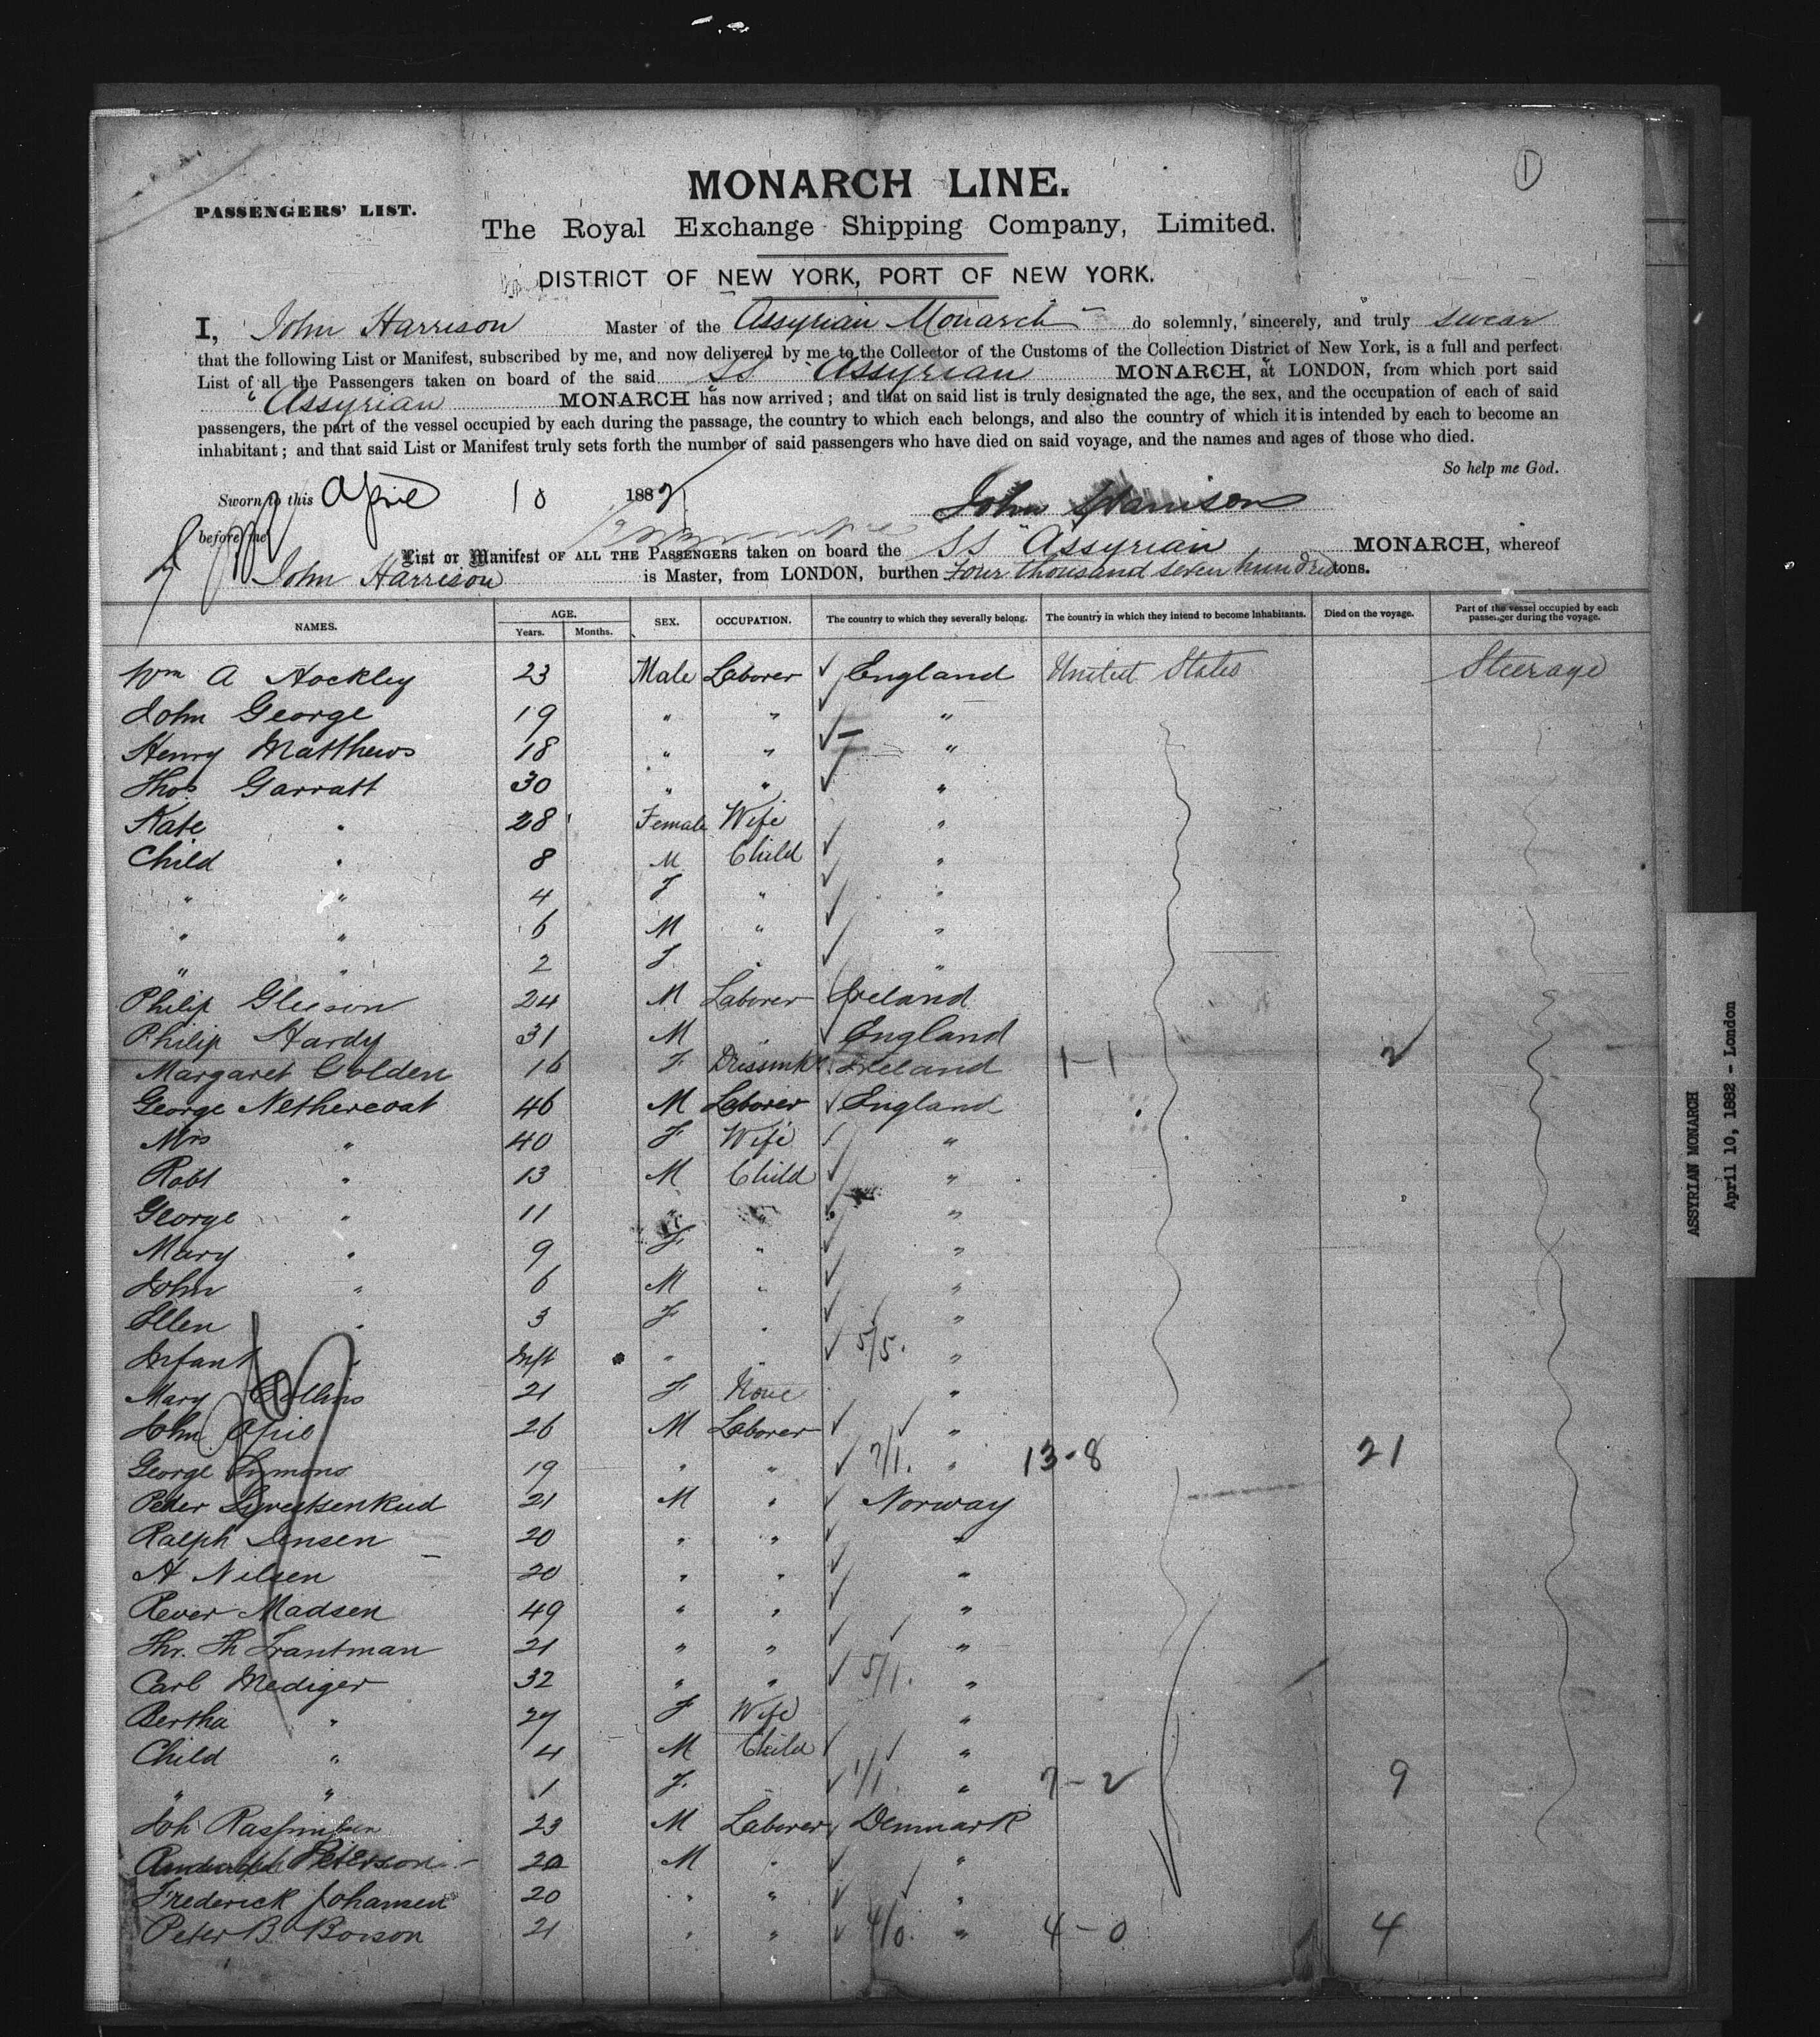 1
MONARCH LINE.
PASSENGERS' LIST.
The Royal Exchange Shipping Company, Limited.
DISTRICT OF NEW YORK, PORT OF NEW YORK.
I, John Harrison Master of the Assyrian Monarch do solemnly, sincerely, and truly swear
that the following List or Manifest, subscribed by me, and now delivered by me to the Collector of the Customs of the Collection District of New York, is a full and perfect
List of all the Passengers taken on board of the said SS "Assyrian MONARCH, at LONDON, from which port said
"Assyrian MONARCH has now arrived; and that on said list is truly designated the age, the sex, and the occupation of each of said
passengers, the part of the vessel occupied by each during the passage, the country to which each belongs, and also the country of which it is intended by each to become an
inhabitant; and that said List or Manifest truly sets forth the number of said passengers who have died on said voyage, and the names and ages of those who died.
So help me God.
Sworn to this April 10 1882
John Harrison
before me
List or Manifest OF ALL THE PASSENGERS taken on board the SS "Assyrian MONARCH, whereof
John Harrison is Master, from LONDON, burthen Four thousand seven hundred tons.
NAMES. AGE. Years. Months. SEX. OCCUPATION. The country to which they severally belong. The country in which they intend to become Inhabitants. Died on the voyage. Part of the vessel occupied by each passenger during the voyage.
Wm A Hockley 23 Male Laborer England United States Steerage
John George 19 " " "
Henry Matthews 18 " " "
Thos Garratt 30 " " "
Kate " 28 Female Wife "
Child " 8 M Child "
" " 4 F " "
" " 6 M " "
" " 2 F " "
Philip Gleeson 24 M Laborer Ireland
Philip Hardy 31 M " England
Margaret Golden 16 F Dressmkr Ireland 1-1 2
George Nethercoat 46 M Laborer England
Mrs " 40 F Wife "
Robt " 13 M Child "
George " 11 " " "
Mary " 9 F " "
John " 6 M " "
Ellen " 3 F " "
Infant " Inft " " 5/5. "
Mary Collins 21 F None "
John April 26 M Laborer "
George Symons 19 " " 7/1. " 13-8 21
Peter 21 M " Norway
Ralph Jensen 20 " " "
H Nilsen 20 " " "
Rever Madsen 49 " " "
Thr. Th Trantman 21 " " "
Carl Mediger 32 " " 5/1. "
Bertha " 27 F Wife "
Child " 4 M Child "
" " 1 F " 1/1. " 7-2 9
Joh 23 M Laborer Denmark
Peterson 20 M " "
Frederick Johansen 20 " " "
Peter B Borson 21 " " 4/0. " 4-0 4
ASSYRIAN MONARCH
April 10, 1882 - London